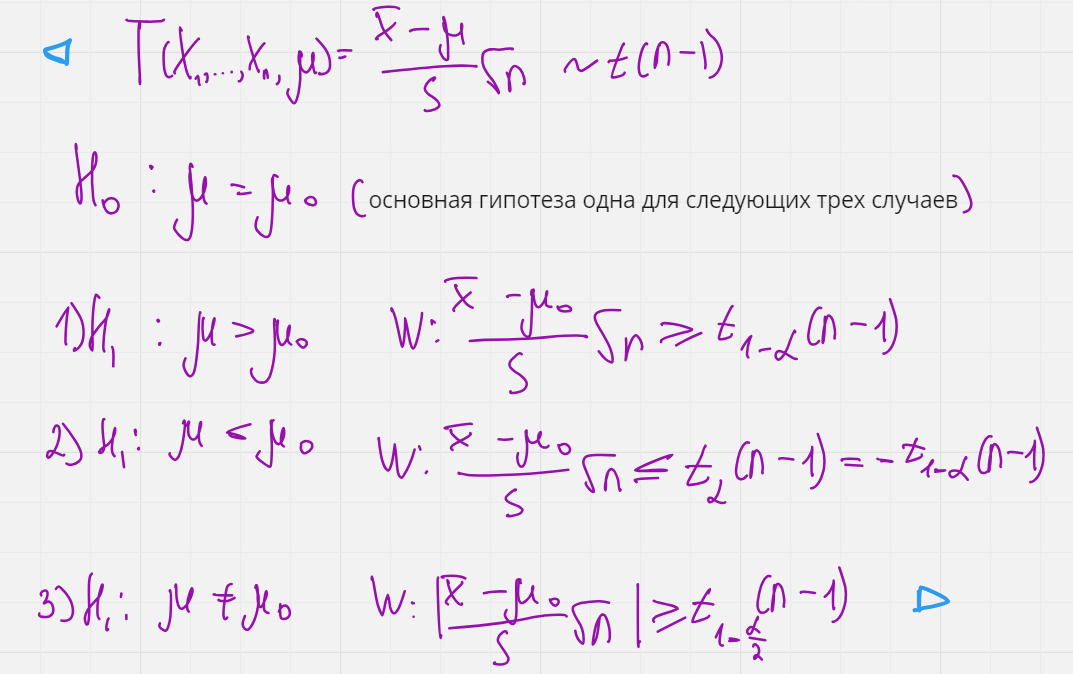 T(X₁,...,Xₙ, μ) = (x̄ − μ)/S √n ~ t(n−1)
H₀ : μ = μ₀ (основная гипотеза одна для следующих трех случаев)
1) H₁ : μ > μ₀ W: (x̄ − μ₀)/S √n ⩾ t₁₋α(n−1)
2) H₁: μ < μ₀ W: (x̄ − μ₀)/S √n ⩽ tα(n−1) = −t₁₋α(n−1)
3) H₁: μ ≠ μ₀ W: |(x̄ − μ₀)/S √n| ⩾ t₁₋α/₂(n−1)